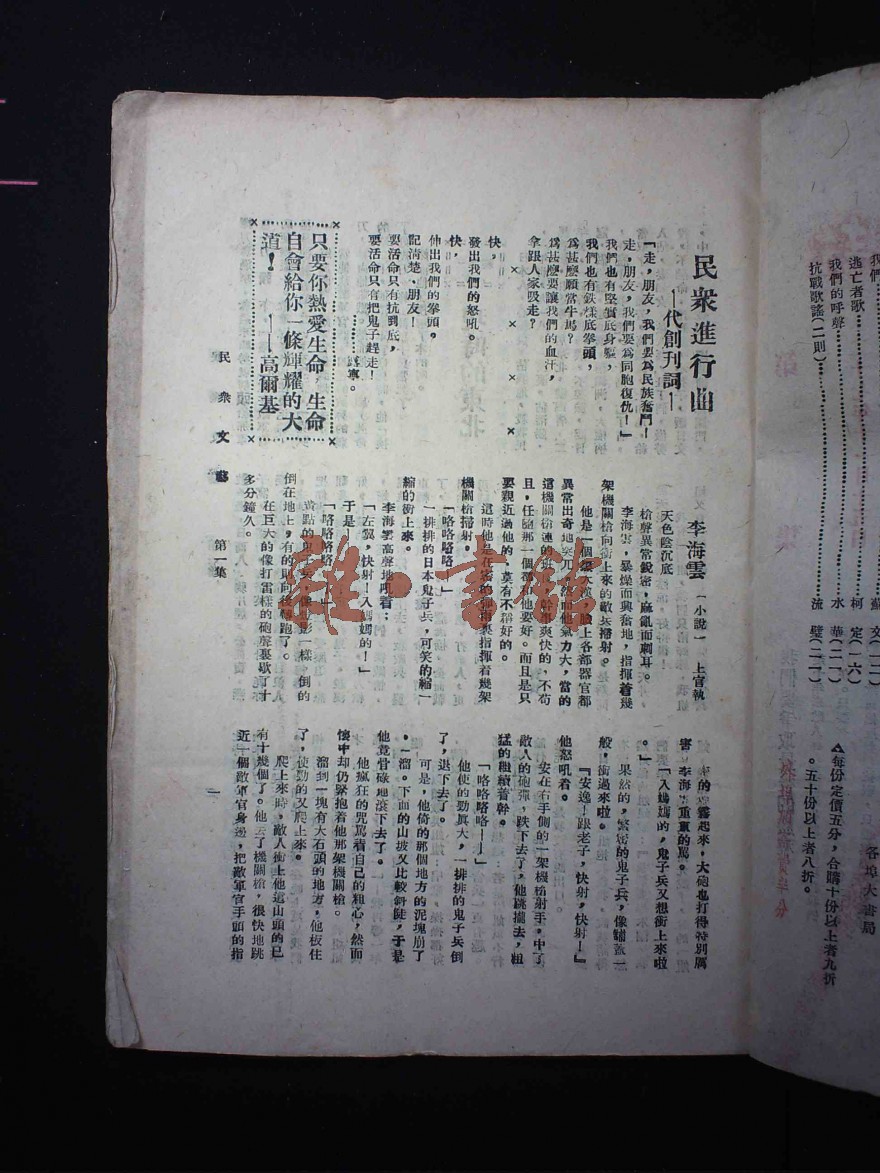 民衆進行曲
——代創刊詞——
「走，朋友，我們要爲民族奮鬥！
走，朋友，我們要爲同胞復仇！」
我們也有堅實底身軀，
我們也有鉄樣底拳頭，
爲甚麼願當牛馬？
爲甚麼要讓我們的血汗，
拿跟人家吸走？
× × × ×
快，
發出我們的怒吼。
快，
伸出我們的拳頭，
記清楚、朋友！
要活命只有抗到底，
要活命只有把鬼子趕走！
寧。
只要你熱愛生命，生命
自會給你一條輝耀的大
道！ ——高爾基
民衆文藝 第一集
李海雲 （小說） 上官執
天色陰沉底
槍聲異常銳密，麻亂而刺耳。
李海雲，暴燥而興奮地，指揮着幾
架機關槍向衝上來的敵兵掃射。
他是一個 漢，臉上各部器官都
異常出奇地突兀，然而他氣力大，當的
這機關槍連的班 幹事爽快的，不苟
且，任隨那一個都和他要好。而且是只
要親近過他的，莫有不稱好的。
這時他是在密的彈雨裏指揮着幾架
機關槍掃射。
「咯咯咯咯 」
一排排的日本鬼子兵，可笑的縮一
縮的衝上來。
李海雲高聲地吼着：
「左翼，快射！入媽媽的！」
于是——
「咯咯咯咯 」
黃點的鬼子兵，像 影一樣，倒的
倒在地上，有的則向後轉跑了。
在巨大的像打雷樣的砲聲裏歇了十
多分鐘久。
的 霧起來，大砲也打得特別厲
害，李海雲重重的罵。
「入媽媽的，鬼子兵又想衝上來啦
。」
果然的，緊密的鬼子兵，像鋪蓋一
般，衝過來啦。
「安逸！跟老子，快射，快射！」
他怒吼着。
安在右手側的一架機槍射手，中了
敵人的砲彈，跌下去了，他跳攏去，粗
猛的繼續着幹。
「咯咯咯咯——」
他使的勁眞大，一排排的鬼子兵倒
了，退下去了。
可是，他倚的那個地方的泥塊崩了
。一溜。下面的山坡又比較斜 ，于是
他竟骨碌地滾下去了。
他瘋狂的咒罵着自己的粗心，然而
懷中却仍緊抱着他那架機關槍。
溜到一塊有大石頭的地方，他板住
了，使勁的又爬上來。
爬上來時，敵人衝上他這山頭的已
有十幾個了。他丟了機關槍，很快地跳
近一個敵軍官身邊，把敵軍官手頭的指
一
我們
逃亡者歌
我們的呼聲
抗戰歌謠（二則）
蘇 文（一二）
柯 定（一六）
水 華（二一）
流 螢（二一）
各埠大書局
▲每份定價五分，合購十份以上者九折
。五十份以上者八折。
雜·書館